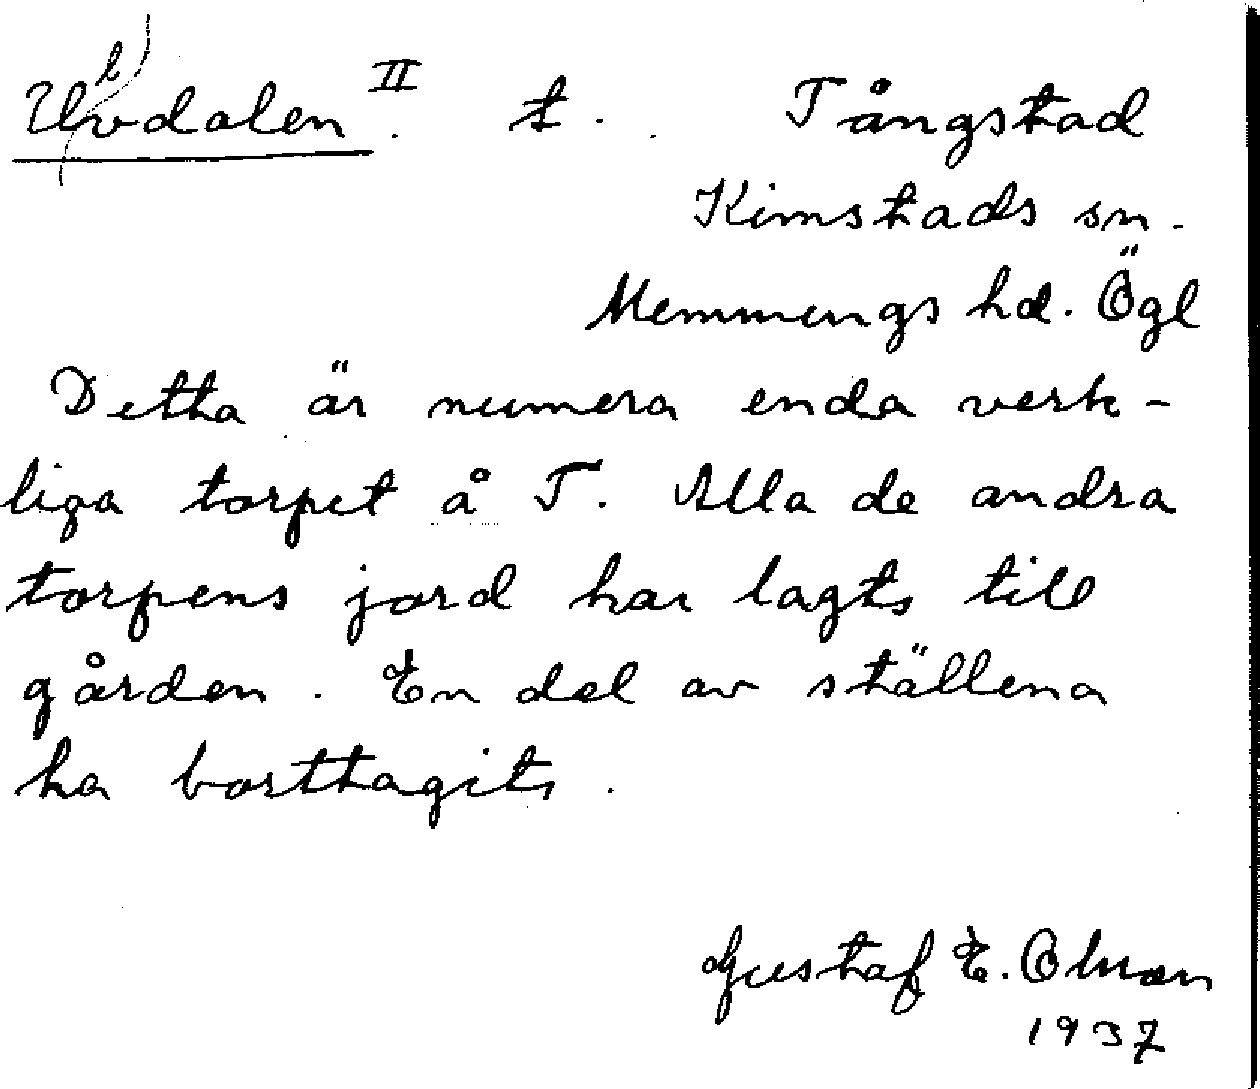 Ulvdalen II. t. Tångstad
Kimstads sn.
Memmings hd. Ögl
Detta är numera enda verk-
liga torpet å T. Alla de andra
torpens jord har lagts till
gården. En del av ställena
ha borttagits.
Gustaf E. Olsson
1937